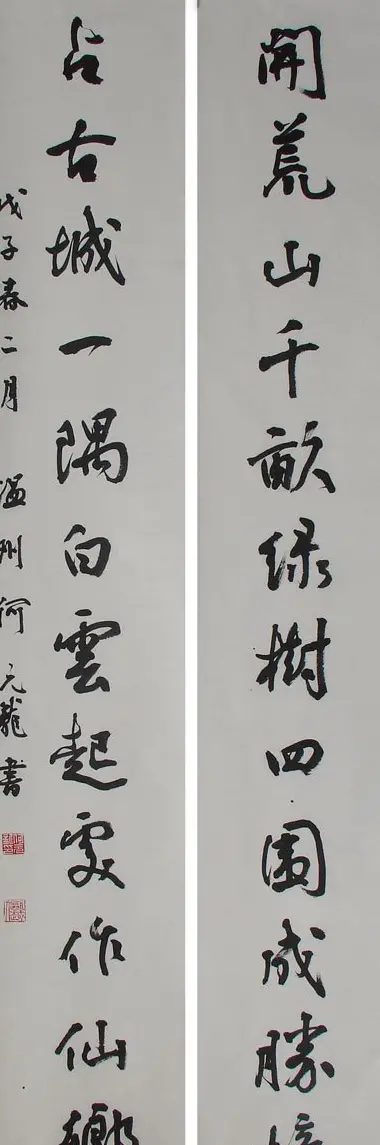 開荒山千畝绿樹四圍成勝
占古城一隅白雲起處作仙鄉
戊子春二月 温州何元龍書